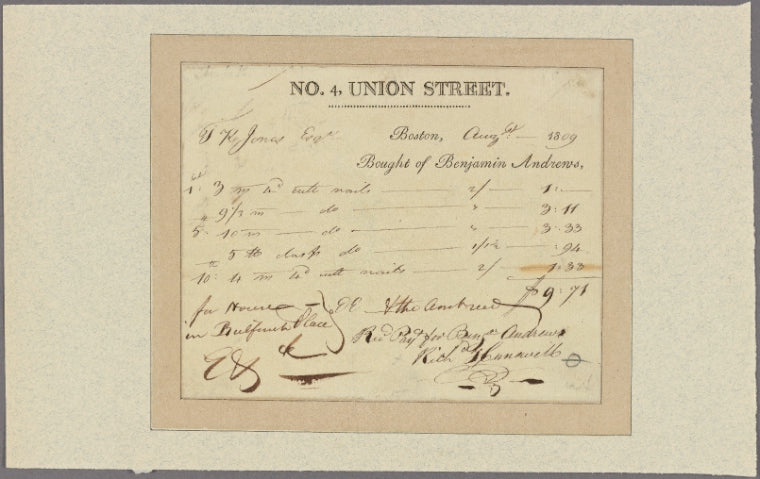 NO. 4, UNION STREET.
T K Jones Esqr Boston, Augst 1809
Bought of Benjamin Andrews,
1. 3 m 4d cutt nails 2/ 1.
4 9 1/3 m do " 3.11
5. 10 m do " 3.33
" 5 lb clasp do 1/1½ .94
10. 4 m 4d cutt nails 2/ 1.33
$9.71
for House
in Bulfinch Place
Recd Payt for Benjn Andrews
Richd